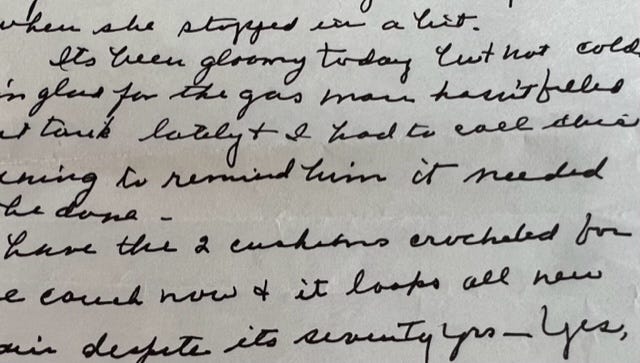 when she stopped in a bit.
Its been gloomy today but not cold
in glad for the gas man hasn't filled
tank lately & I had to call this
ening to remind him it needed
be done -
have the 2 cushions crocheted for
e couch now & it looks all new
despite its seventy yrs - Yes,